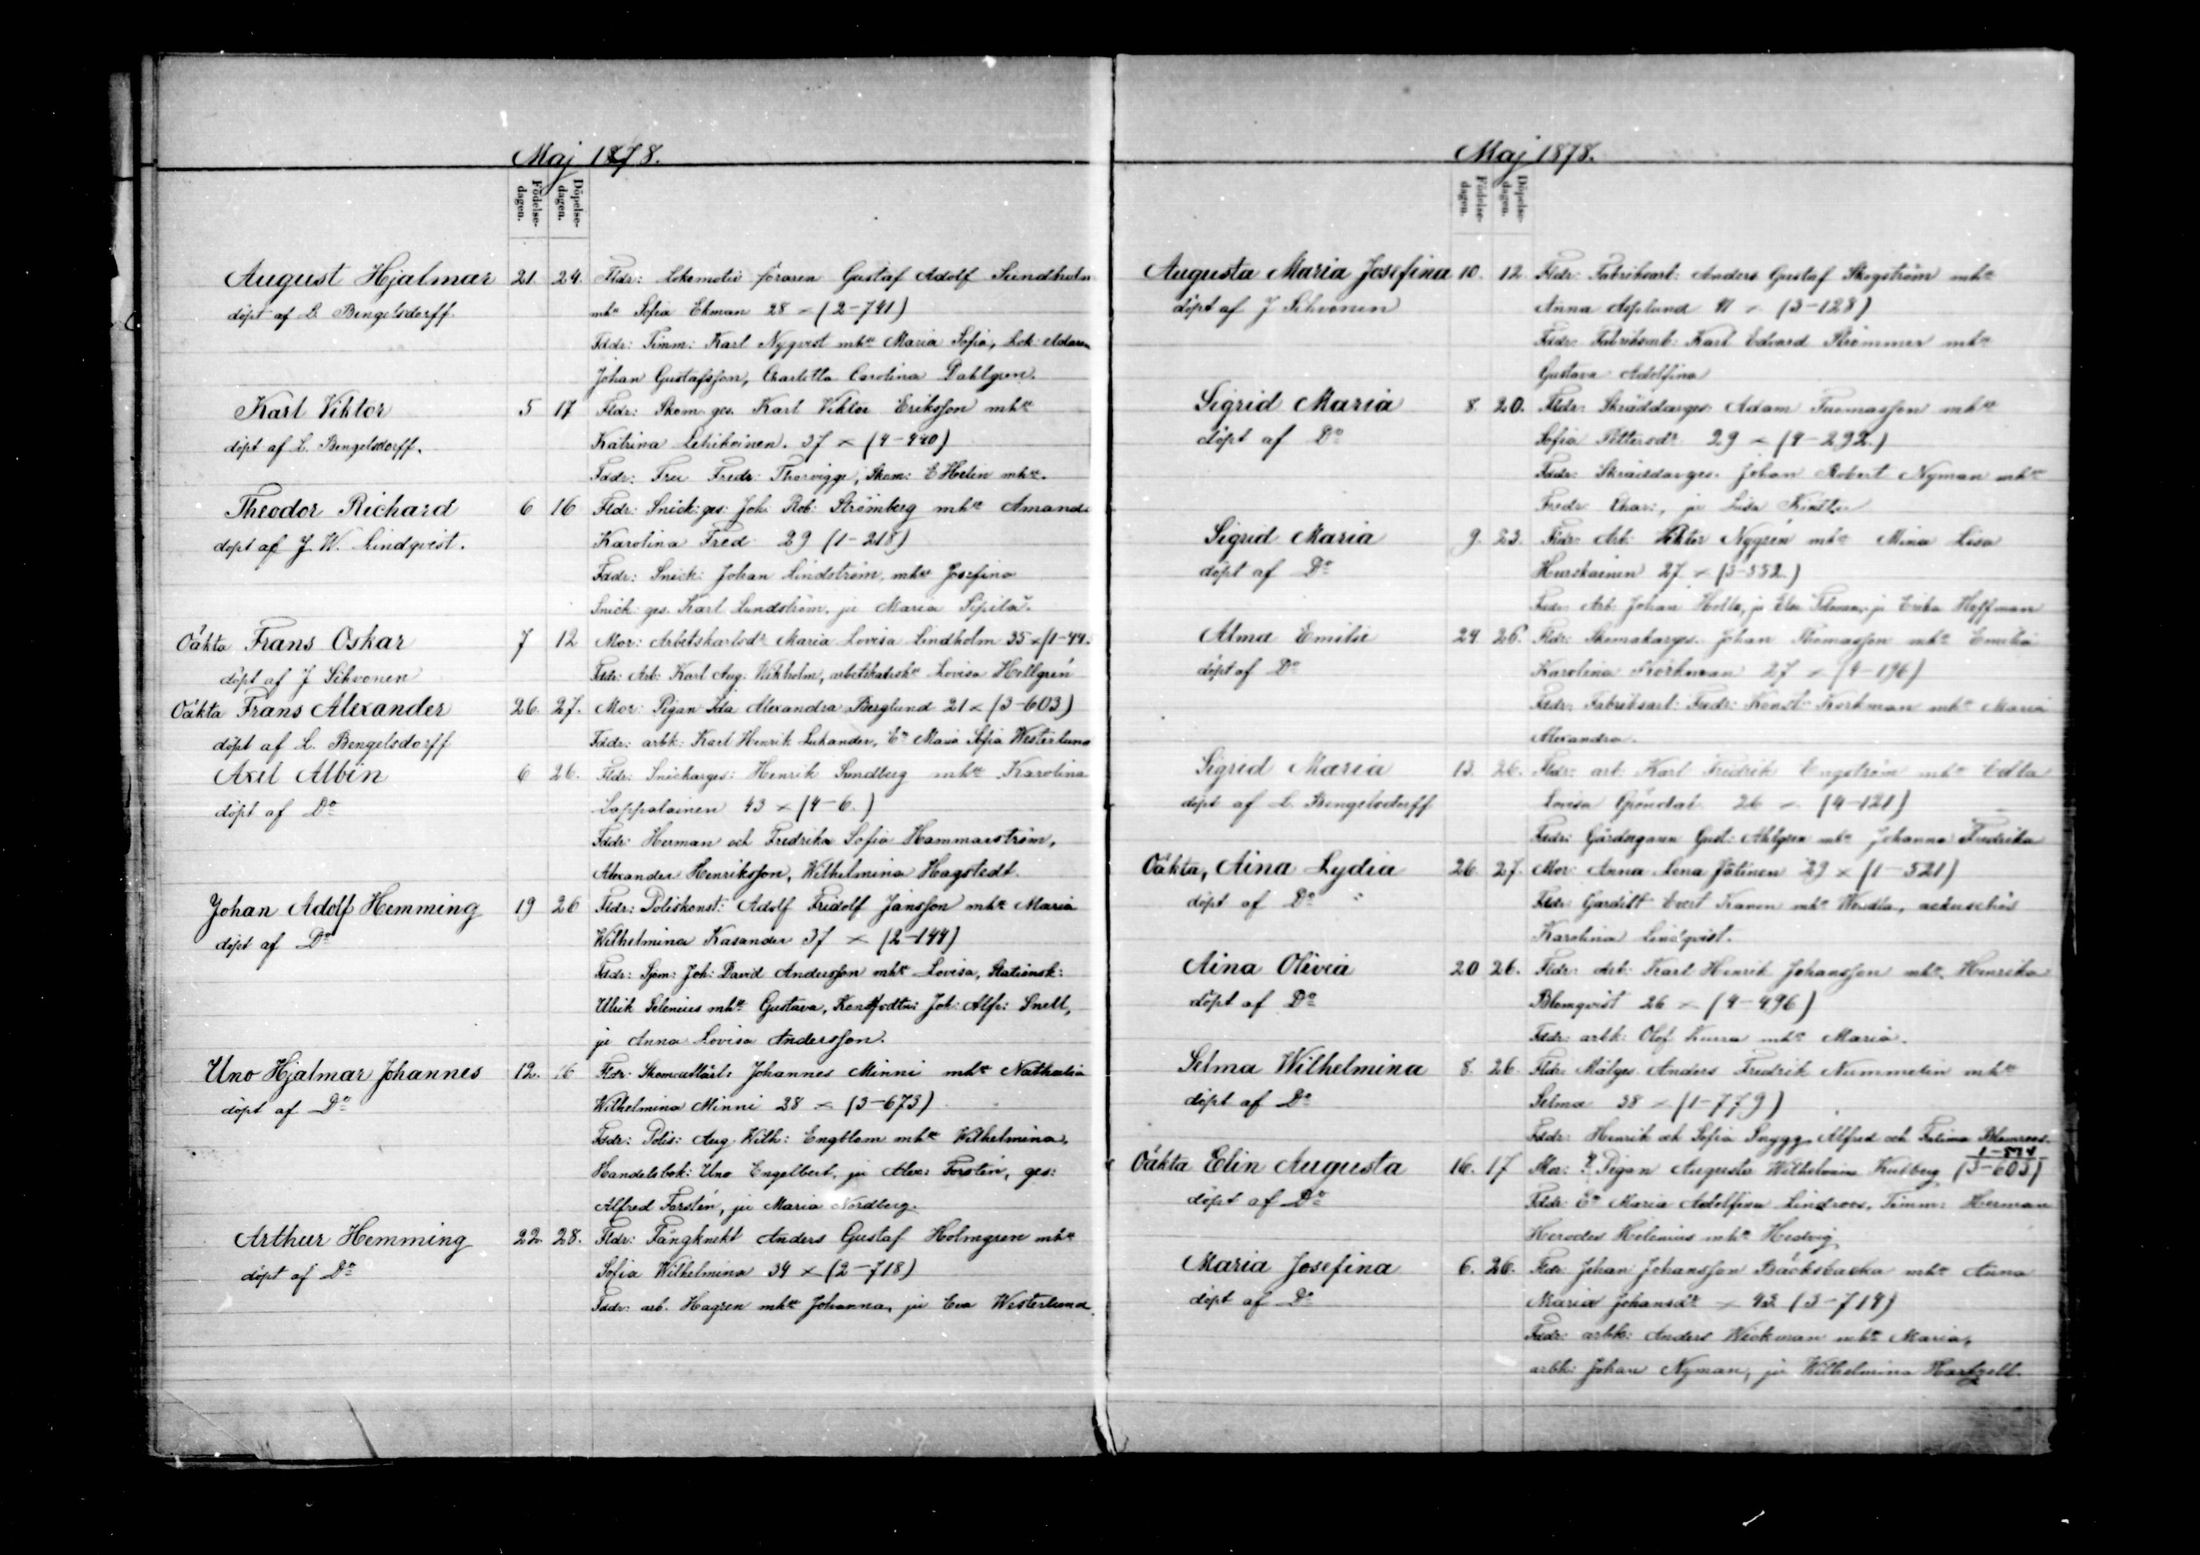 Maj 1878.
Födelse-dagen. Döpelse-dagen.
August Hjalmar 21. 24. Fldr: Lokomotiv föraren Gustaf Adolf Sundholm
döpt af L. Bengelsdorff. mhu Sofia Ekman 28 × (2-741)
Fddr: Timm: Karl Nyqvist mhu Maria Sofia, Lok: eldaren
Johan Gustafsson, Charlotta Carolina Dahlgren.
Karl Viktor 5 17 Fldr: Skom. ges. Karl Viktor Eriksson mhu
döpt af L. Bengelsdorff. Katrina Lehikoinen. 37 × (4-440)
Fddr: Fredr: Skom: E Holen mhu.
Theodor Richard 6 16 Fldr: Snick: ges: Joh: Rob: Strömberg mhu Amanda
döpt af J. W. Lindqvist. Karolina Fred 29 (1-218)
Fddr: Snick: Johan Lindström, mhu Josefina
Snick: ges. Karl Lundström, ju Maria Sipilä.
Oäkta Frans Oskar 7 12 Mor: Arbetskarlsdr Maria Lovisa Lindholm 35 × (1-44.
döpt af J Sihvonen Fddr: Arb: Karl Aug. Wikholm, Lovisa Hellgrén
Oäkta Frans Alexander 26. 27. Mor: Pigan Ida Alexandra Berglund 21 × (3-603)
döpt af L. Bengelsdorff Fddr: arbk: Karl Henrik Lukander, Ea Maria Sofia Westerlund
Axel Albin 6 26. Fldr: Snickarges: Henrik Sundberg mhu Karolina
döpt af Do Lappalainen 43 × (4-6.)
Fddr: Herman och Fredrika Sofia Hammarström,
Alexander Henriksson, Wilhelmina Hagstedt.
Johan Adolf Hemming 19 26 Fldr: Poliskonst: Adolf Fridolf Jansson mhu Maria
döpt af Do Wilhelmina Kasander 37 × (2-144)
Fddr: Sjöm: Joh: David Andersson mhu Lovisa, Stationsk:
Ulrik Selenius mhu Gustava, Joh: Alfr: Snell,
ju Anna Lovisa Andersson.
Uno Hjalmar Johannes 12. 26 Fldr: Johannes Minni mhu Nathalia
döpt af Do Wilhelmina Minni 38 × (3-673)
Fddr: Polis: Aug. Wilh: Engblom mhu Wilhelmina,
Handelsbok: Uno Engelbert, ju Alex: Forstén, ges:
Alfred Forstén, ju Maria Nordberg.
Arthur Hemming 22. 28. Fldr: Fångknekt Anders Gustaf Holmgren mhu
döpt af Do Sofia Wilhelmina 34 × (2-718)
Fddr: arb. Hagren mhu Johanna, ju Eva Westerlund.
Maj 1878.
Födelse-dagen. Döpelse-dagen.
Augusta Maria Josefina 10. 12. Fldr: Fabriksarb: Anders Gustaf Skogström mhu
döpt af J Sihvonen Anna Asplund 41 × (3-128)
Fddr: Fabriksarb: Karl Edvard Strömmer mhu
Gustava Adolfina
Sigrid Maria 8. 20. Fldr: Skräddarges: Adam Tuomasson mhu
döpt af Do Sofia Pettersdr. 29 × (4-292.)
Fddr: Skräddarges. Johan Robert Nyman mhu
Fredr: ju Lisa
Sigrid Maria 9. 23. Fldr: Arb: Viktor Nygrén mhu Mina Lisa
döpt af Do Hurskainen 27 × (3-352.)
Fddr: Arb: Johan ju ju Erika Hoffman
Alma Emilia 24. 26. Fldr: Skomakarges. Johan Thomasson mhu Emilia
döpt af Do Karolina Korkman 27 × (4-196)
Fddr: Fabriksarb: Fredr: Konst: Korkman mhu Maria
Alexandra.
Sigrid Maria 13. 26. Fldr: arb: Karl Fredrik Engström mhu Edla
döpt af L. Bengelsdorff Lovisa Gröndal 26 × (4-121)
Fddr: Gust: Ahlgren mhu Johanna Fredrika
Oäkta, Aina Lydia 26. 27. Mor: Anna Lena Jätinen 29 × (1-521)
döpt af Do Fddr: Evert mhu Wendla,
Karolina Lindqvist.
Aina Olivia 20 26. Fldr: Arb: Karl Henrik Johansson mhu Henrika
döpt af Do Blomqvist 26 × (4-496)
Fddr: arbk: Olof Kurra mhu Maria.
Selma Wilhelmina 8. 26. Fldr: Målges. Anders Fredrik Nummelin mhu
döpt af Do Selma 38 × (1-779)
Fddr: Henrik och Sofia Snygg, Alfred och
1-574
Oäkta Elin Augusta 16. 17 Mor: Pigan Augusta Wilhelmina Kulberg (3-603)
döpt af Do Fddr: Ea Maria Adolfina Lindroos, Timm: Herman
Herodes Helenius mhu Hedvig
Maria Josefina 6. 26. Fldr: Johan Johansson Bäcksbacka mhu Anna
döpt af Do Maria Johansdr × 42 (3-714)
Fddr: arbk: Anders Wickman mhu Maria,
arbk: Johan Nyman, ju Wilhelmina Hartzell.